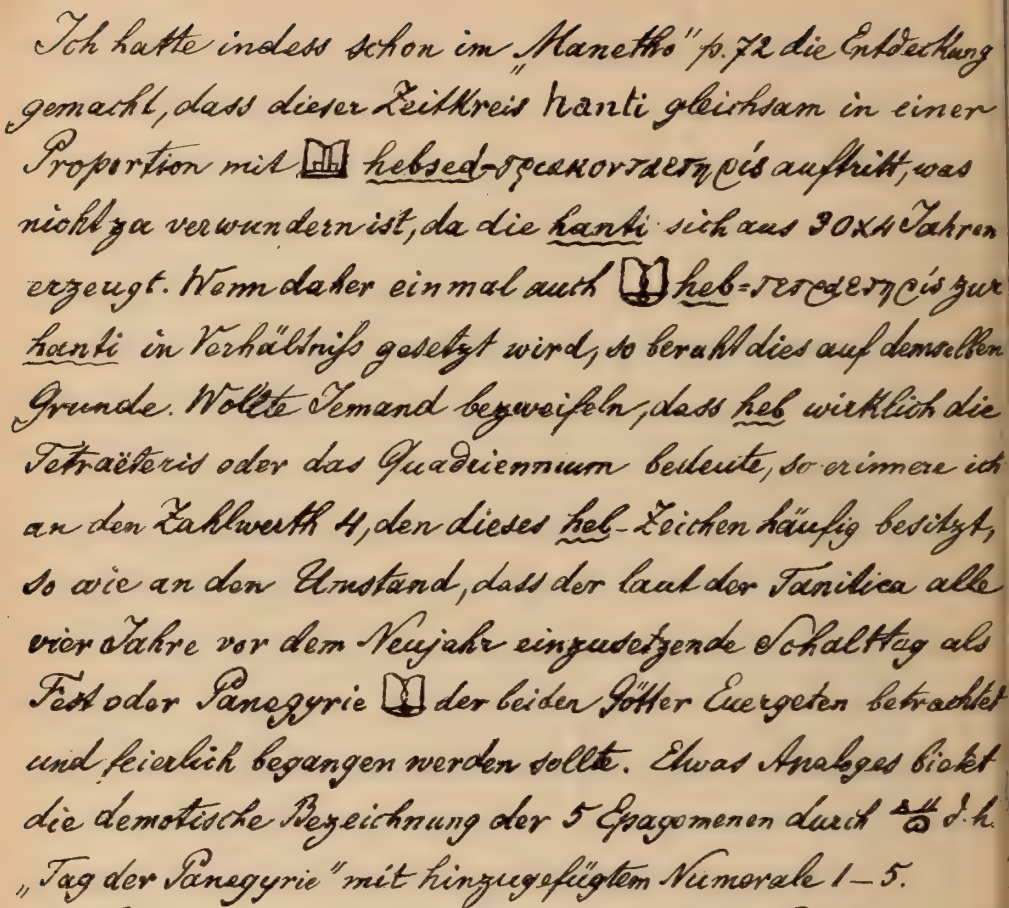 Ich hatte indess schon im „Manetho" p. 72 die Entdeckung
gemacht, dass dieser Zeitkreis hanti gleichsam in einer
Proportion mit hebsed-τριακονταετηρίς auftritt, was
nicht zu verwundern ist, da die hanti sich aus 30x4 Jahren
erzeugt. Wenn daher einmal auch heb=τετραετηρίς zur
hanti in Verhältniſs gesetzt wird, so beruht dies auf demselben
Grunde. Wollte Jemand bezweifeln, dass heb wirklich die
Tetraëteris oder das Quadriennium bedeute, so erinnere ich
an den Zahlwerth 4, den dieses heb-Zeichen häufig besitzt,
so wie an den Umstand, dass der laut der Tanitica alle
vier Jahre vor dem Neujahr einzusetzende Schalttag als
Fest oder Panegyrie der beiden Götter Euergeten betrachtet
und feierlich begangen werden sollte. Etwas Analoges bietet
die demotische Bezeichnung der 5 Epagomenen durch d. h.
„Tag der Panegyrie" mit hinzugefügtem Numerale 1–5.